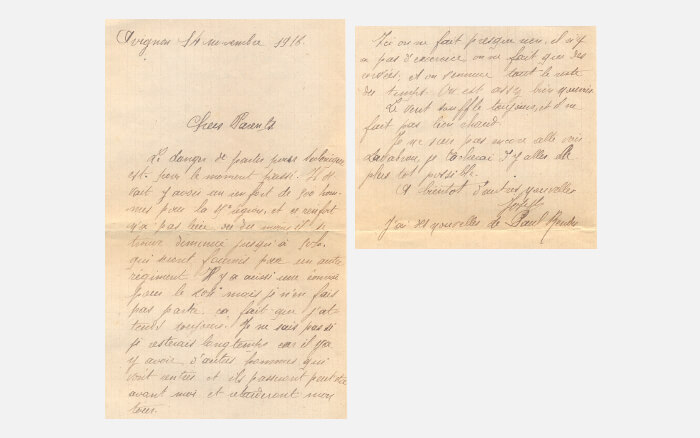 Avignon 14 novembre 1916.
Chers Parents
Le danger de partir pour
est pour le moment passé. Il de
vait y avoir un renfort de 500 hom-
mes pour la et ce renfort
n'a pas lieu ou du moins il se
trouve diminué jusqu'à
qui seront fournis par un autre
régiment. Il y a aussi une
pour le mais je n'en fais
pas partie, ça fait que j'at-
tends toujours. Je ne sais pas si
je resterais longtemps car il va
y avoir d'autres hommes qui
vont rentrer et ils passeront peut être
avant moi et retarderont mon
tour.
Ici on ne fait presque rien, il n'y
a pas d'exercice, on ne fait que des
corvées, et on s'ennuie tout le reste
du temps. On est assez bien
Le vent souffle toujours, et il ne
fait pas bien chaud.
Je ne suis pas encore allé voir
je tacherai d'y aller le
plus tot possible.
A bientot d'autres nouvelles
Joseph
J'ai des nouvelles de Paul